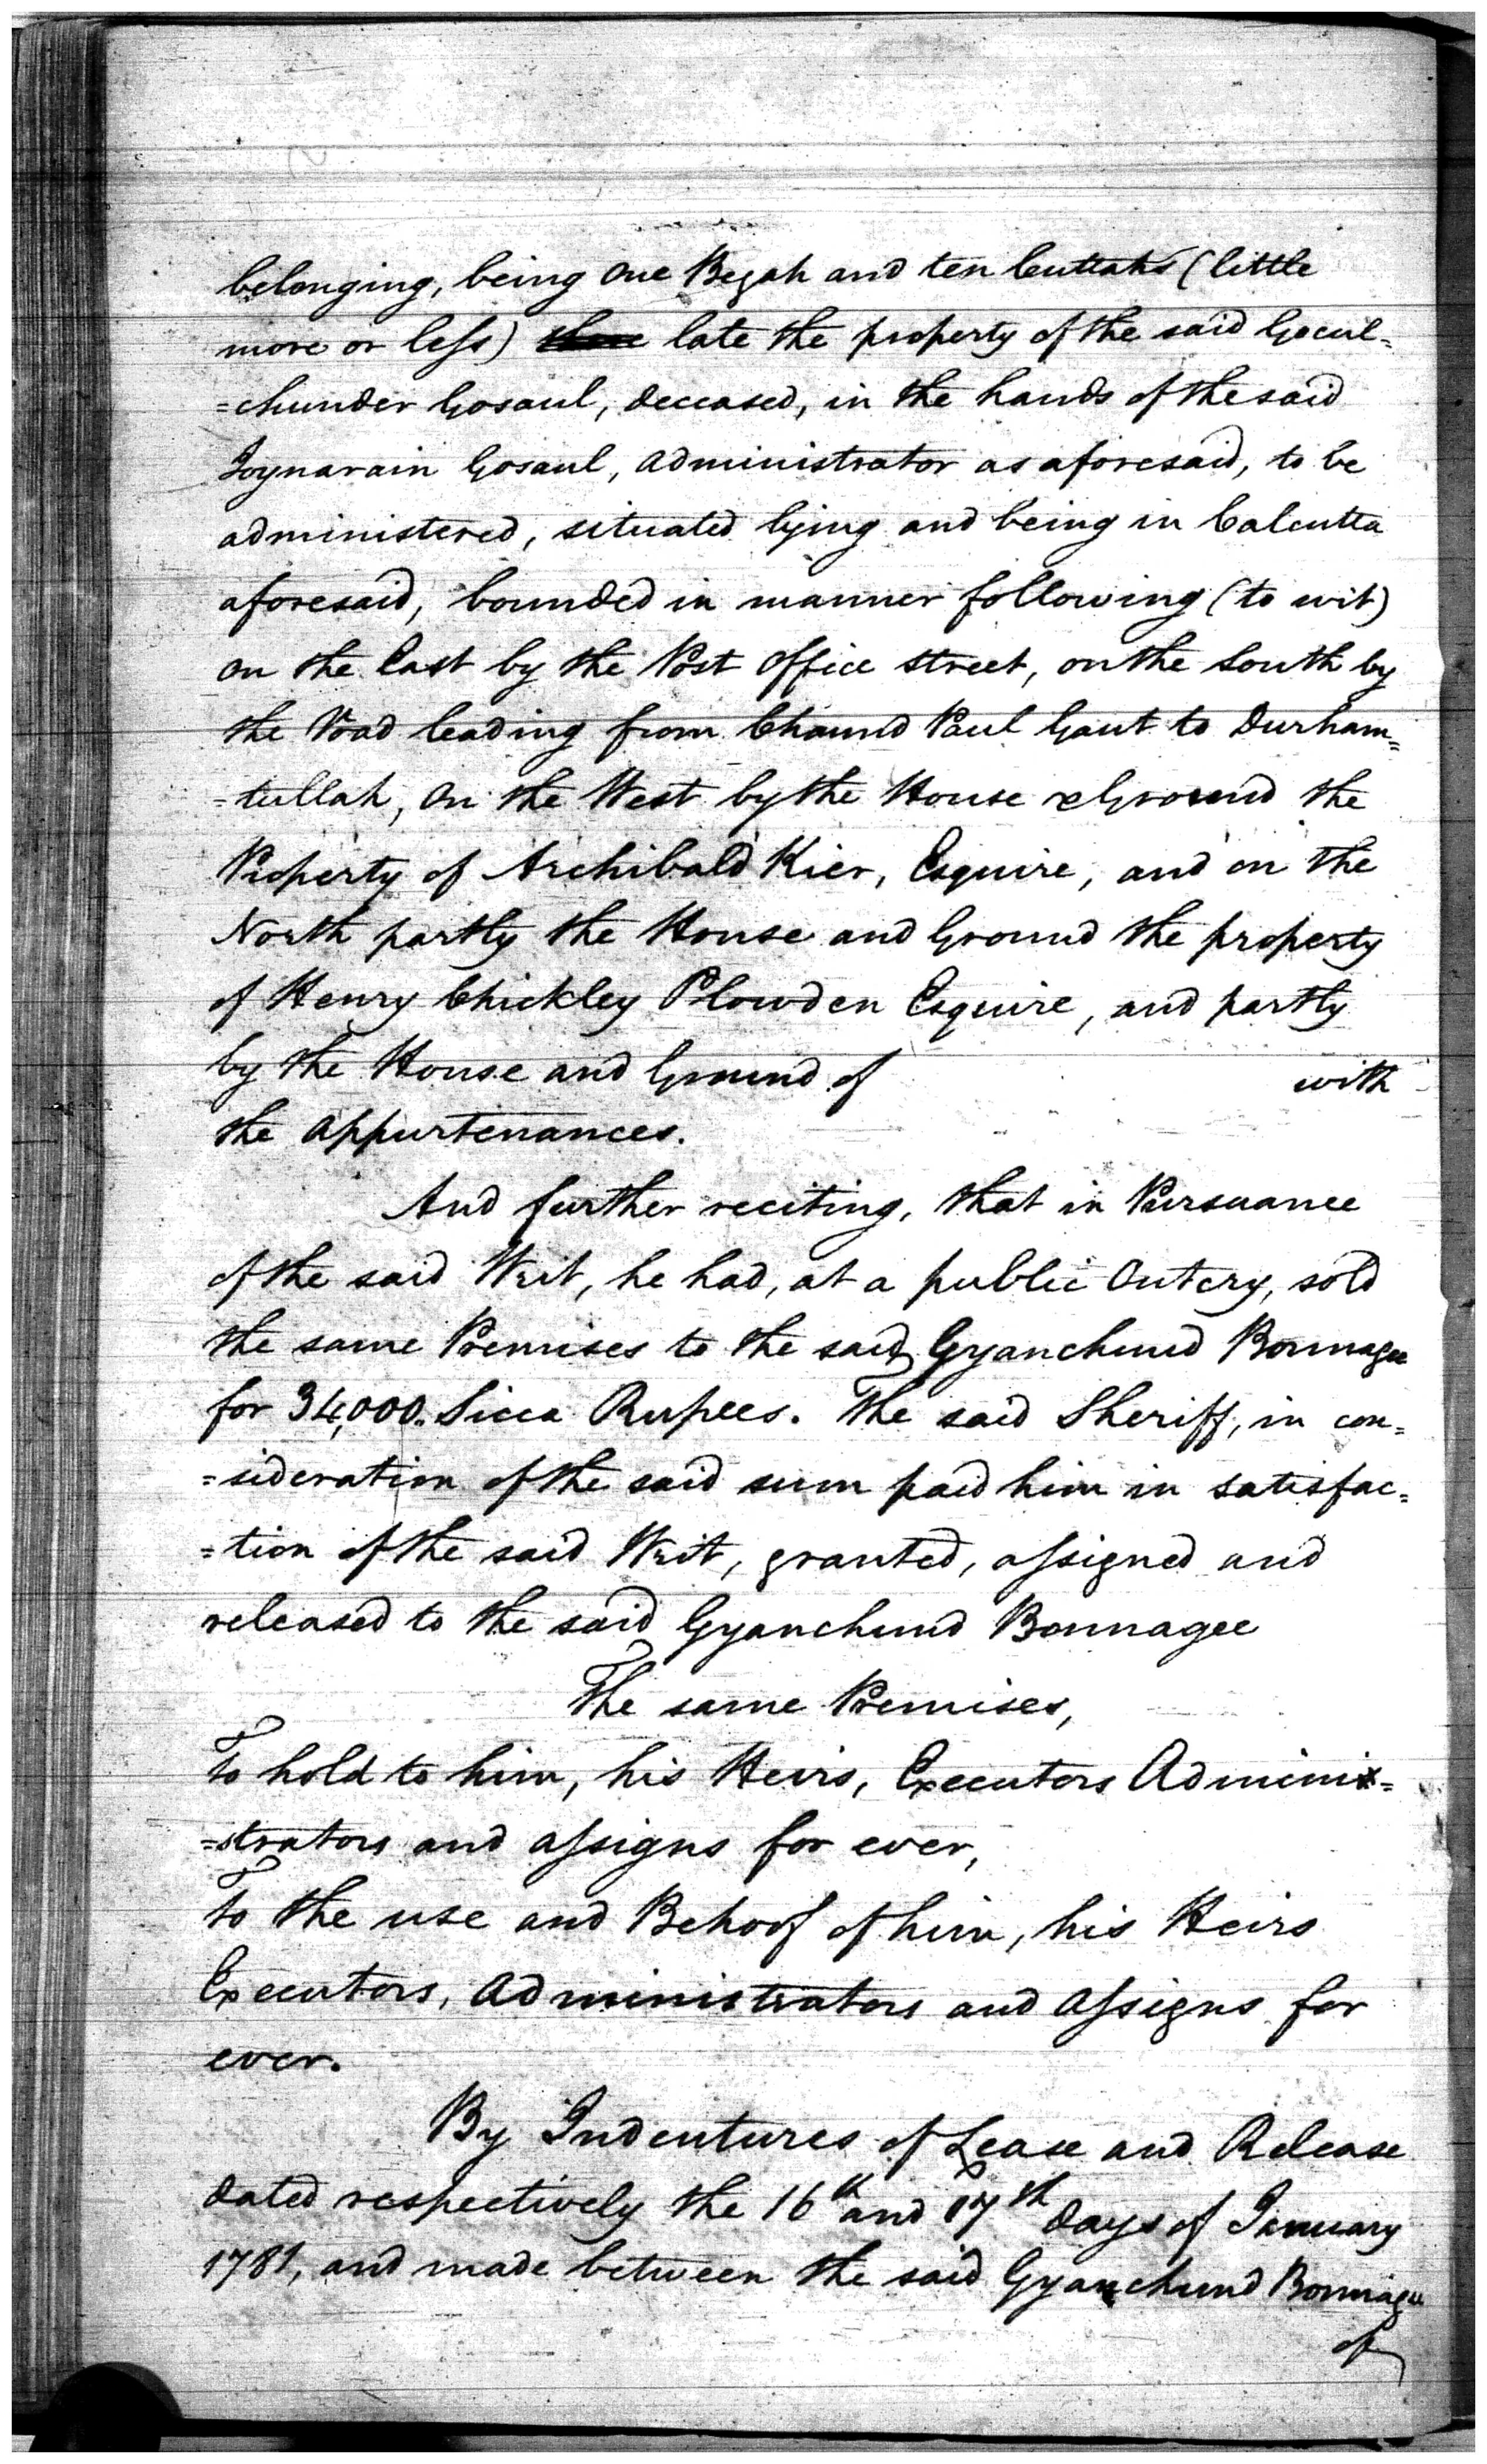 belonging, being One Begah and ten Cuttahs (little
more or less) late the property of the said Gocul=
=chunder Gosaul, deceased, in the hands of the said
Joynarain Gosaul, administrator as aforesaid, to be
administered, situated lying and being in Calcutta
aforesaid, bounded in manner following (to wit)
on the East by the Post Office Street, on the South by
the Road leading from Chaund Paul Gaut to Durham=
=tullah, On the West by the House & Ground the
Property of Archibald Kier, Esquire, and on the
North partly the House and Ground the property
of Henry Chickley Plowden Esquire, and partly
by the House and Ground of with
the appurtenances.
And further reciting, that in Pursuance
of the said Writ, he had, at a public Outcry, sold
the same Premises to the said Gyanchund Bonnagee
for 34,000. Sicca Rupees. The said Sheriff, in con=
=sideration of the said sum paid him in satisfac=
=tion of the said Writ, granted, assigned and
released to the said Gyanchund Bonnagee
The same Premises,
To hold to him, his Heirs, Executors Adminis=
=strators and assigns for ever,
To the use and Behoof of him, his Heirs
Executors, Administrators and Assigns for
ever.
By Indentures of Lease and Release
dated respectively the 16th and 17th days of January
1781, and made between the said Gyanchund Bonnagee
of